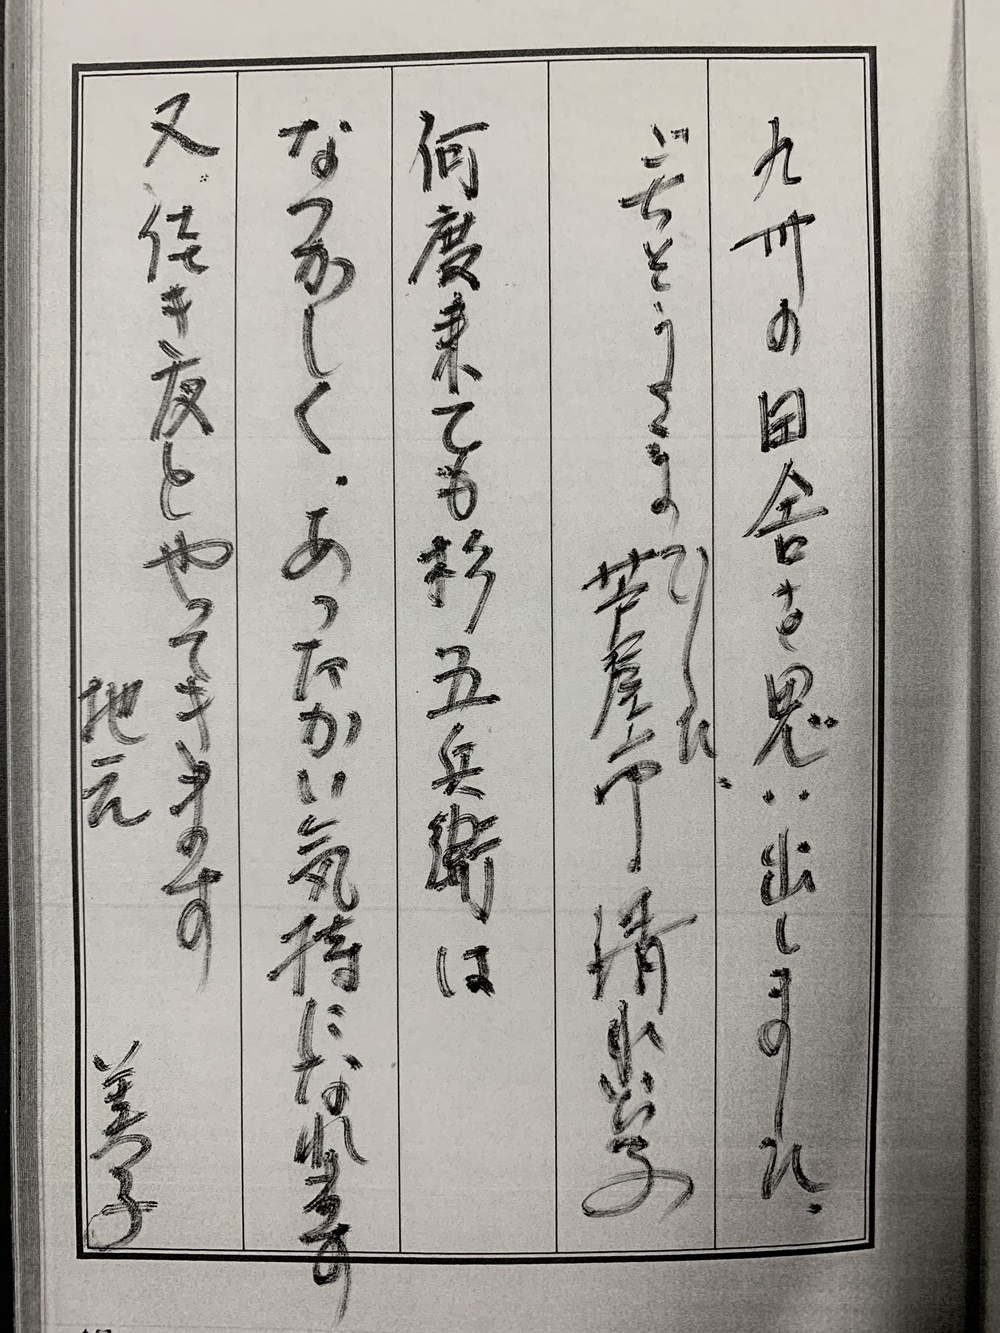 九州の田舎を思い出しました.
ごちそうさま
でした.
芦屋市 清水
何度来ても杉五兵衛は
なつかしく.あったかい気持になれます
又佳き友とやってきます
地元
美子